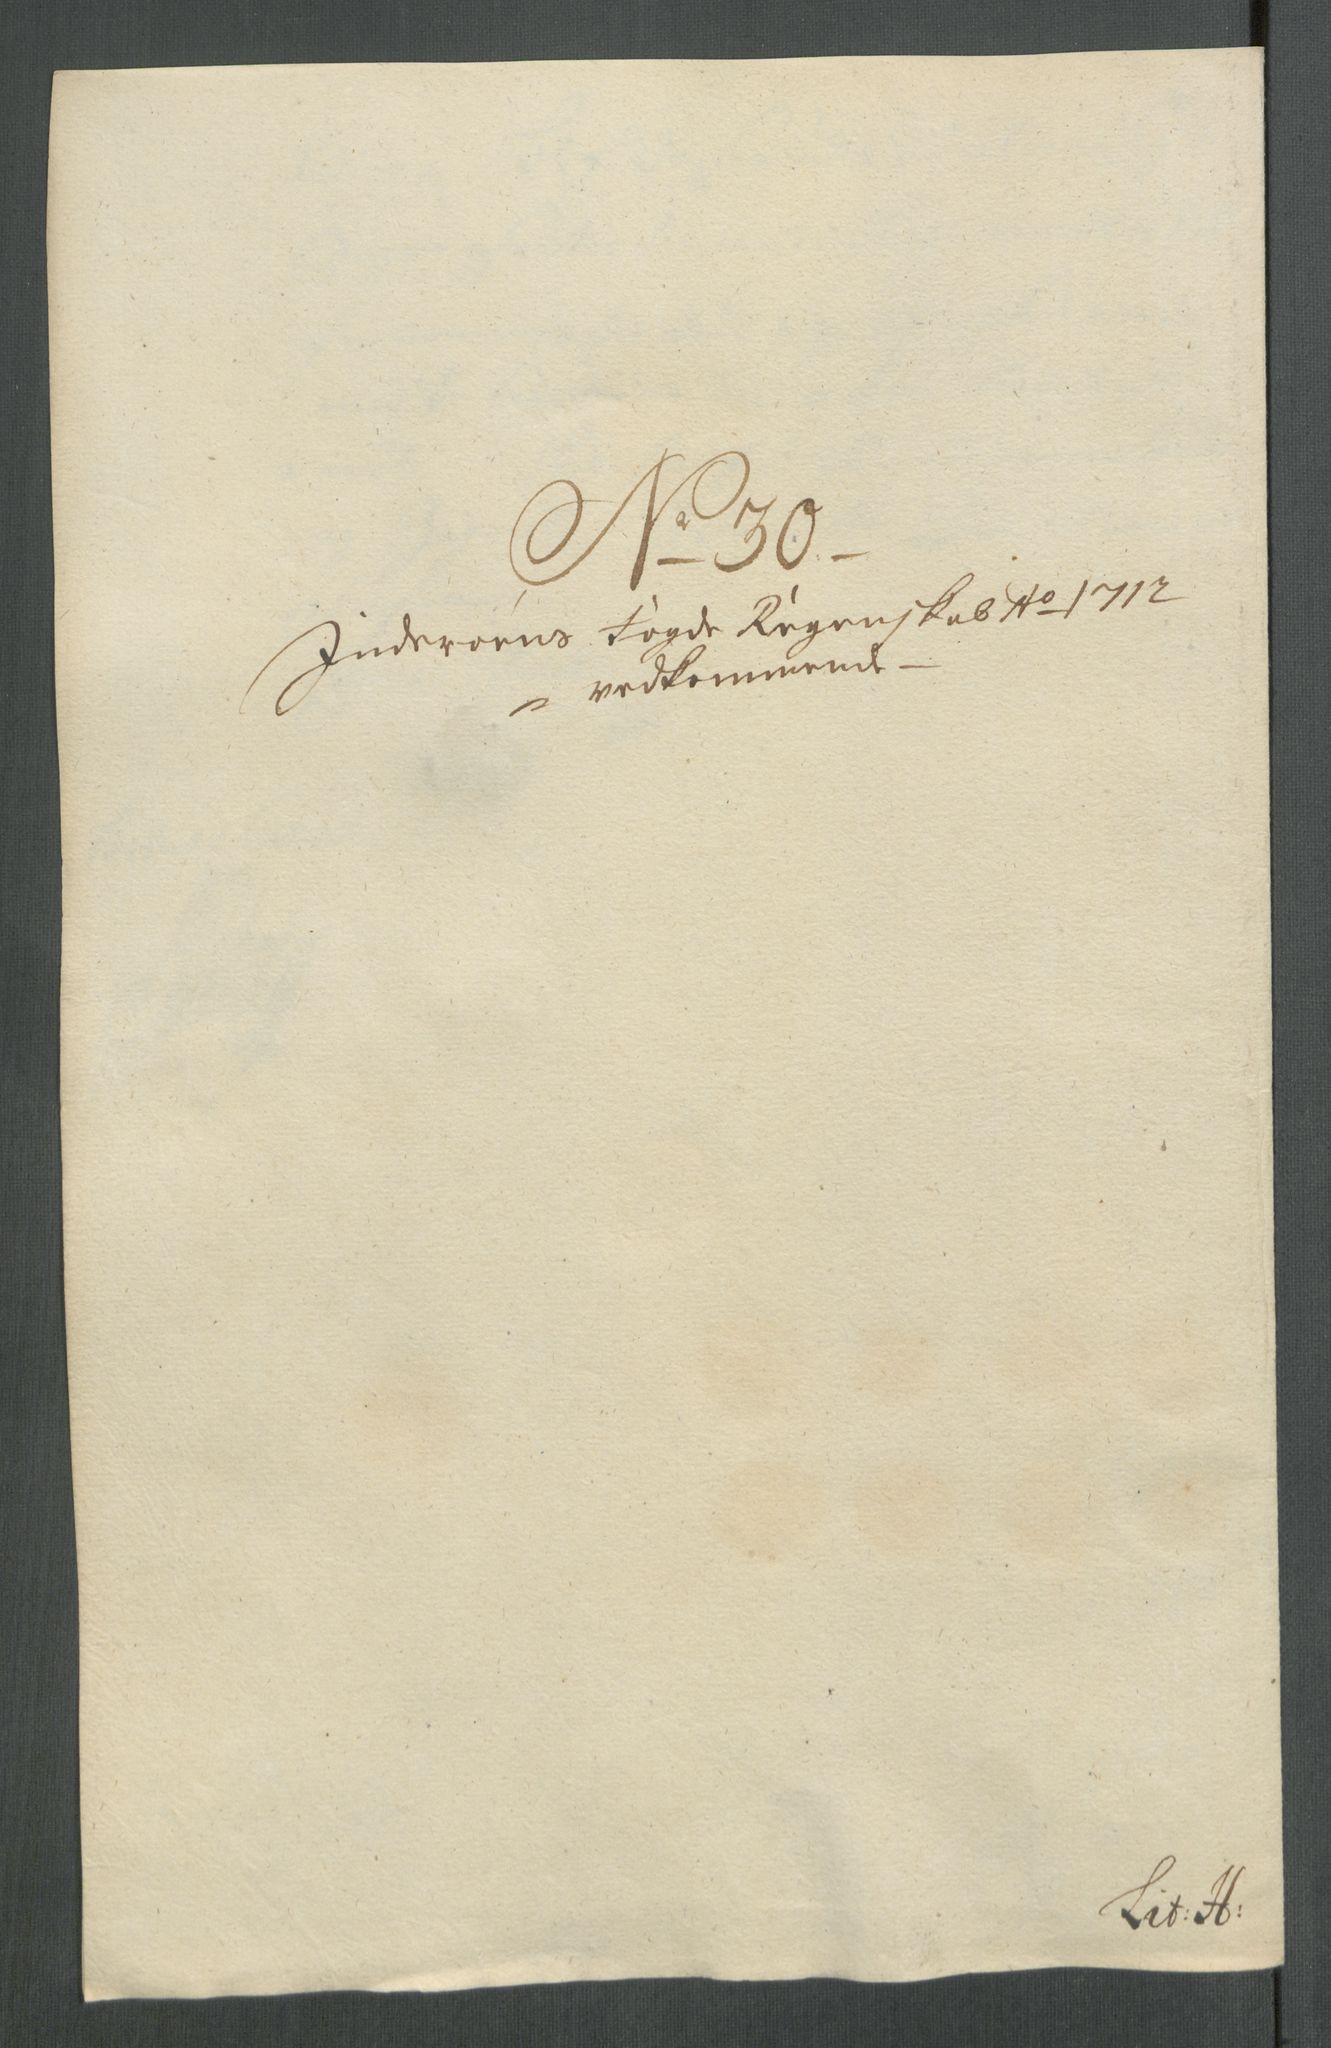 No 30
Inderøens fogde Regenskab Ao 1712
vedkommende
Lit: H: